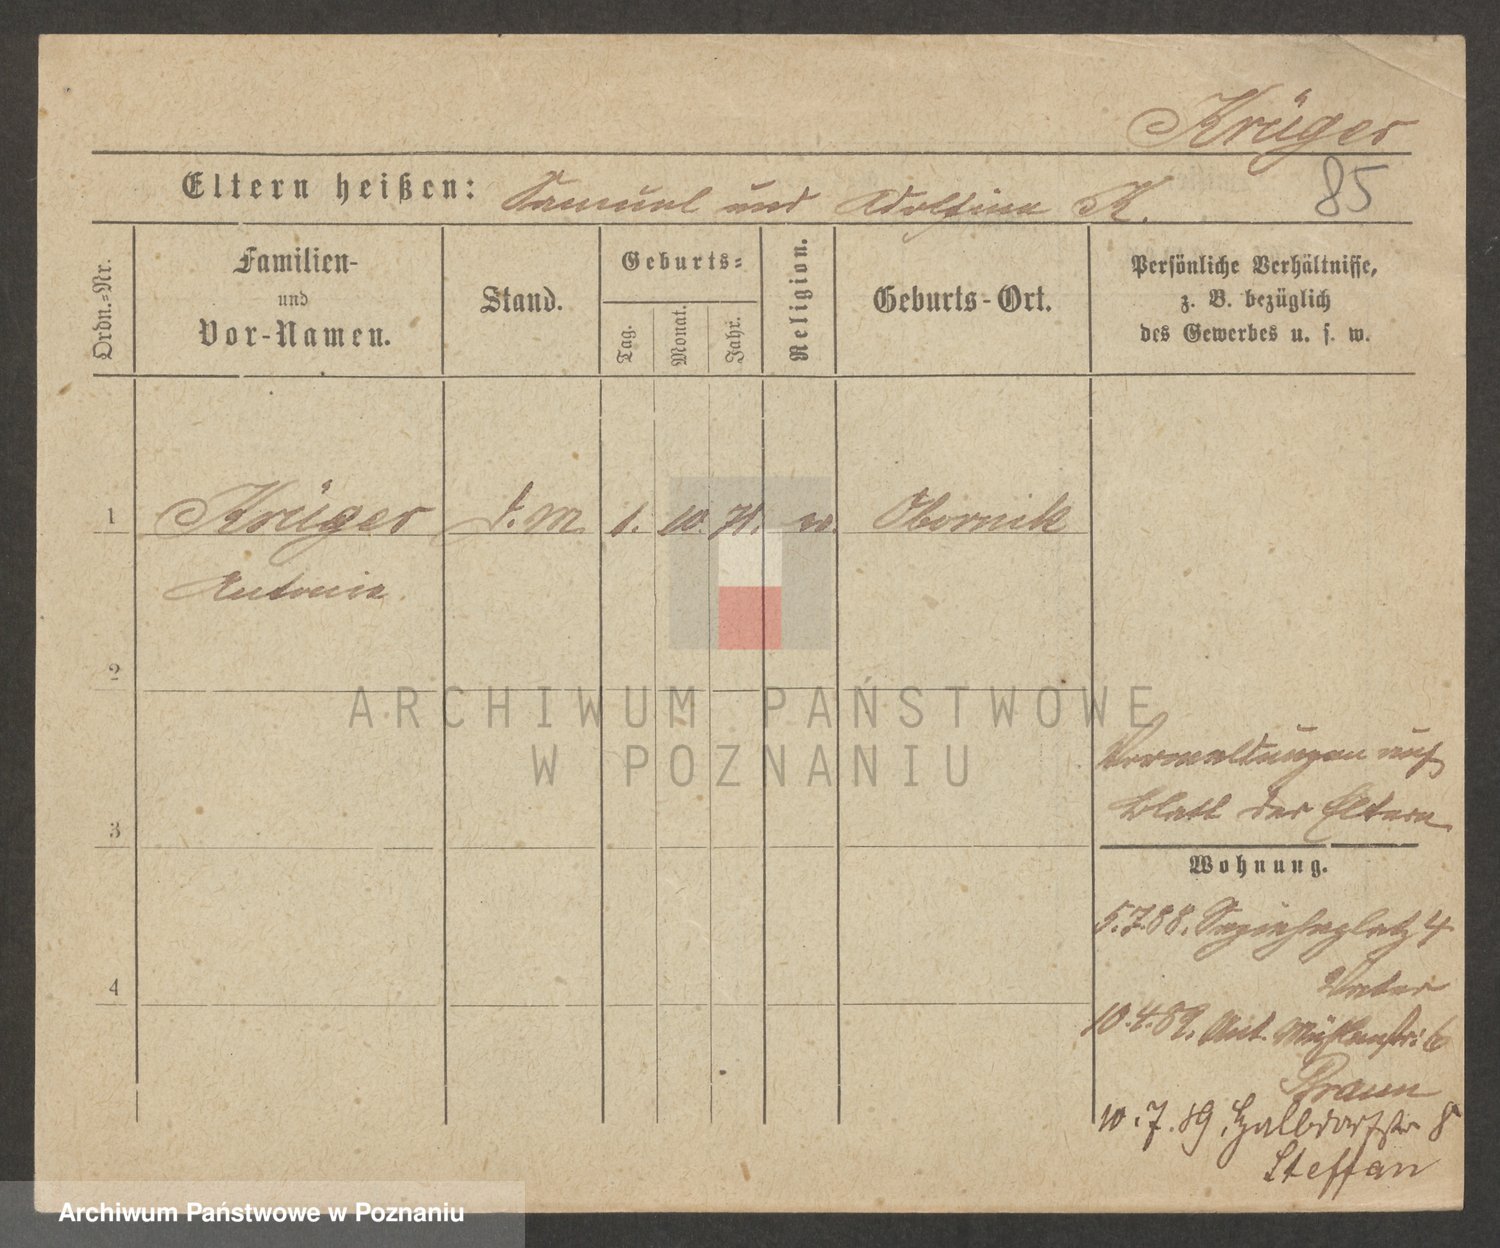 Krüger
85
Eltern heißen: Samuel und Adolfine K.
Ordn.=Nr.
Familien-
und
Vor-Namen.
Stand.
Geburts=
Tag.
Monat.
Jahr.
Religion.
Geburts-Ort.
Persönliche Verhältnisse,
z. B. bezüglich
des Gewerbes u. s. w.
1 Krüger d. M. 1. 10. 71. Obornik
Antonie
2
3
4
Vermeldungen auf
Blatt der Eltern
Wohnung.
5.7.88. Sapiehaplatz 4
Vater
10.4.89. Mühlenstr: 6
Braun
10.7.89. Halbdorfstr 8
Steffan
ARCHIWUM PAŃSTWOWE
W POZNANIU
Archiwum Państwowe w Poznaniu